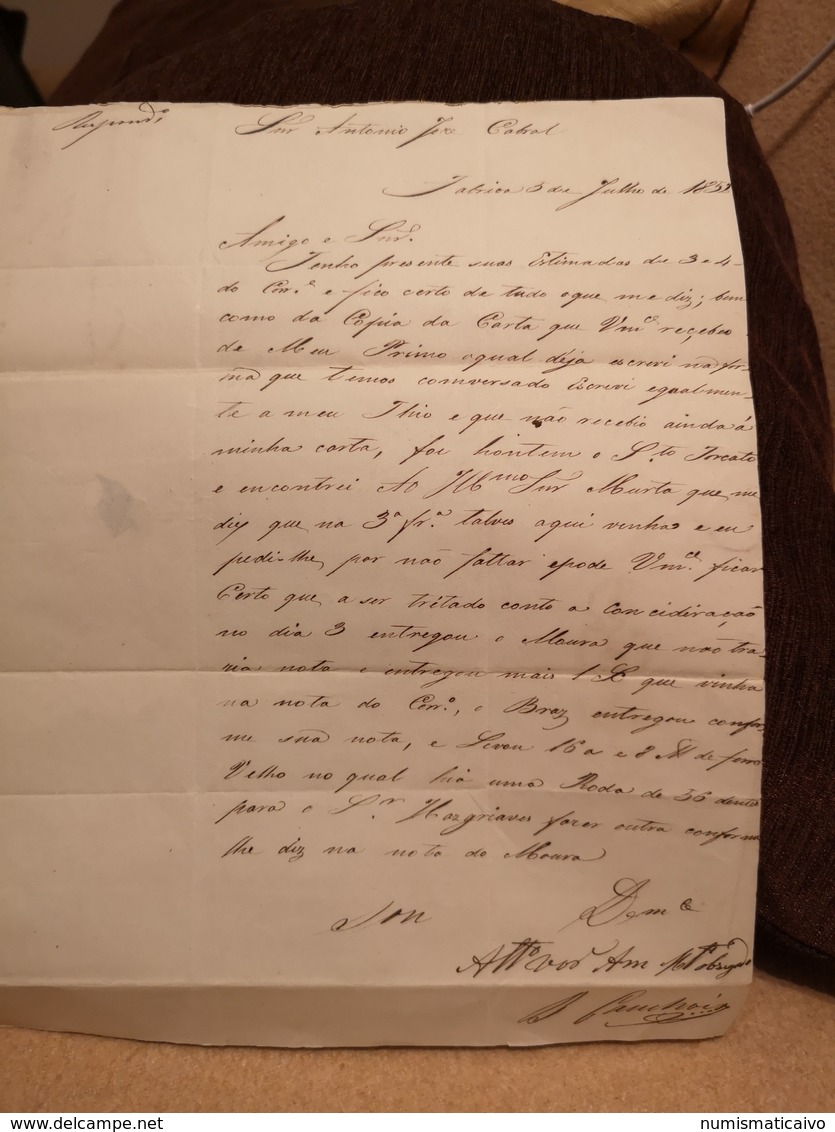 Respondi
Snr Antonio Joze Cabral
Fabrica 5 de Julho de 185
Amigo e Snr.
Tenho prezente suas Estimadas de 3 e 4
do Corr.e e fico certo de tudo oque me diz; bem
como da Copia da Carta que Vmce reçebeo
de Meu Primo oqual deja escrevi na for-
ma que temos comversado Escrevi egoalmen-
te a meu Thio e que não recebio ainda á
minha carta, foi hontem o Sto Torcato
e encontrei Ao Illmo Snr Murta que me
diz que na 3a fr.a talves aqui venha e eu
pedi-lhe, por não faltar epode Vmce. ficar
Certo que a ser tratado conto a Concideração
no dia 3 entregou o Moura que não tra-
ria nota e entregou mais 1 que vinha
na nota do Corr.o, o Braz entregou confor-
me sua nota, e Levou 16 a e 8 de ferro
Velho no qual hia uma Roda de 36 dentes
para o Sr Hargriaves fazer outra conforme
lhe diz na nota do Moura
Sou
De Vmce
Atto vor Am Mto obrigdo
numismaticaivo
delcampe.net